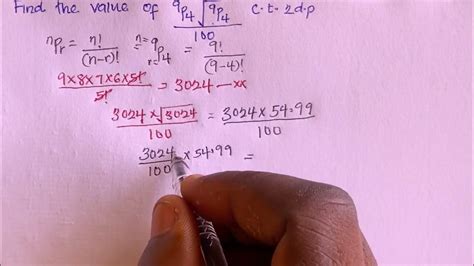 Find the value of ⁹P₄√⁹P₄ / 100 c.t. 2d.p
ⁿPᵣ = n! / (n-r)! n= ⁹P₄ r= = 9! / (9-4)!
9×8×7×6×5! / 5! = 3024 — **
3024 × √3024 / 100 = 3024 × 54.99 / 100
3024 / 100 × 54.99 =